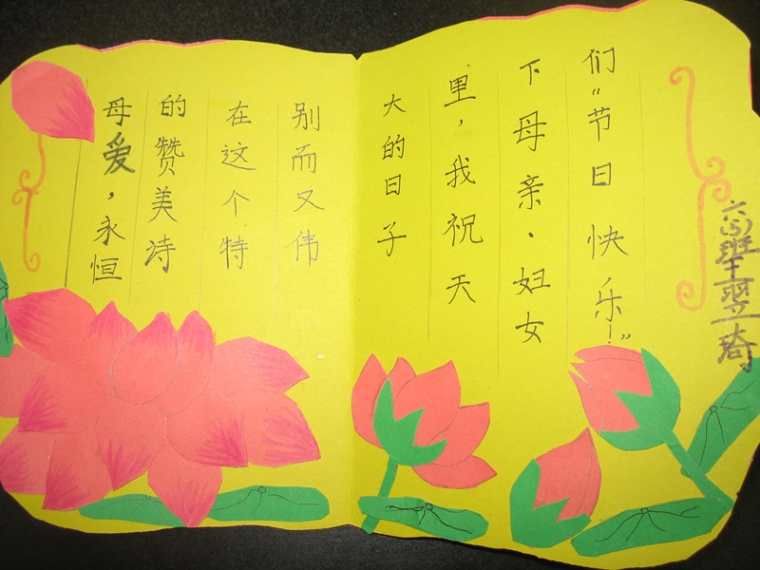 母爱，永恒
的赞美诗
在这个特
别而又伟
大的日子
里，我祝天
下母亲、妇女
们“节日快乐！”
六(3)班王翌琦